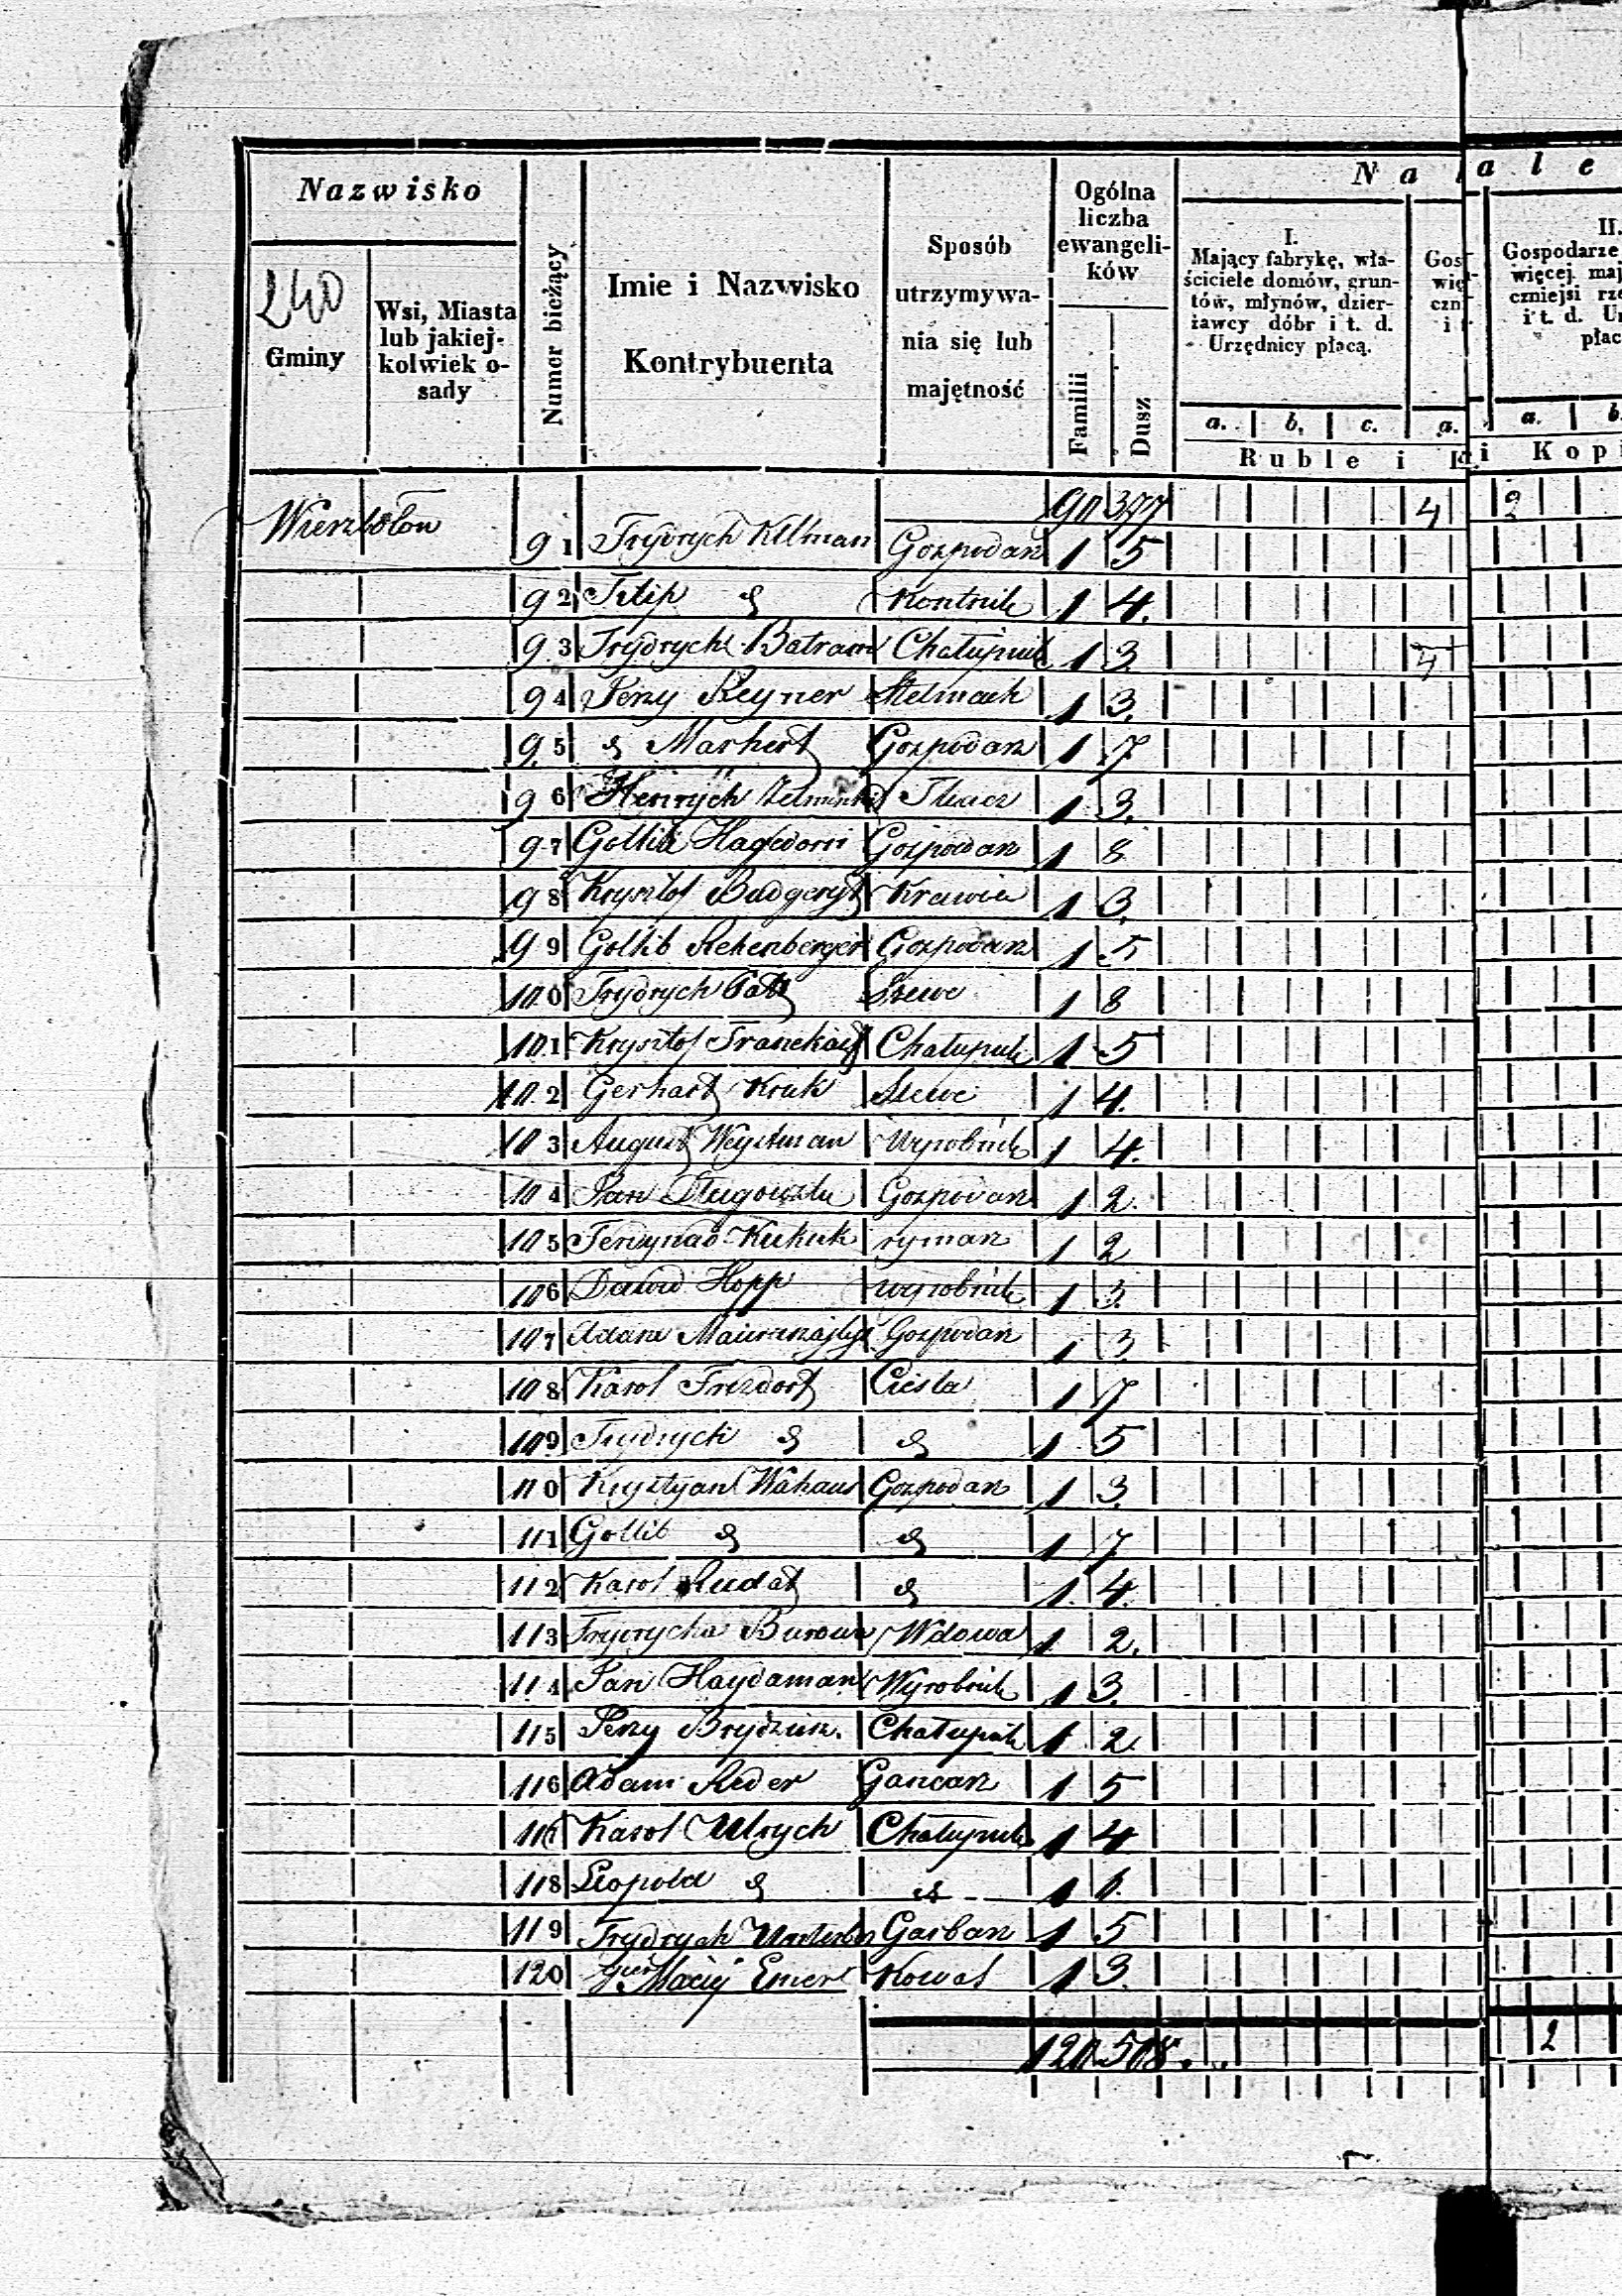 Nazwisko
240
Gminy
Wsi, Miasta
lub jakiej-
kolwiek o-
sady
Numer bieżący
Imie i Nazwisko
Kontrybuenta
Sposób
utrzymywa-
nia się lub
majętność
Ogólna
liczba
ewangeli-
ków
Familii
Dusz
Nal
I.
Mający fabrykę, wła-
ściciele domów, grun-
tów, młynów, dzier-
żawcy dóbr i t. d.
Urzędnicy płacą.
a. b. c. a.
Ruble i K
ale
II.
Gospodarze
więcej maj
czniejsi rze
i t. d. Ur
płac
a. b.
i Kopi
90 377 4 2
Wierzbolow 91 Frydrych Gospodarz 1 5
92 Filip d Kontnik 1 4.
93 Frydrych Batram Chałupnik 1 3 4
94 Jerzy Reyner Stelmach 1 3.
95 d Markert Gospodarz 1 7
96 Henrych Tkacz 1 3.
97 Gottlib Hagedorn Gospodarz 1 8
98 Krysztof Krawiec 1 3.
99 Gottlib Rekenberger Gospodarz 1 5
100 Frydrych Szewc 1 8
101 Krysztof Chałupnik 1 5
102 Gerhart Kruk Szewc 1 4.
103 August Weystman Wyrobnik 1 4.
104 Jan Gospodarz 1 2.
105 Ferdynad Kukuk rymarz 1 2
106 Dawid Hopp wyrobnik 1 3.
107 Adam Gospodarz 1 3
108 Karol Frezdorf Ciesla 1 7
109 Frydrych d d 1 5
110 Krysztyan Wahaus Gospodarz 1 3.
111 Gottlib d d 1 7
112 Karol Rudat d 1 4.
113 Frydrycha Wdowa 1 2.
114 Jan Haydaman Wyrobnik 1 3.
115 Jerzy Chałupnik 1 2.
116 Adam Reder Gancarz 1 5
117 Karol Ulrych Chałupnik 1 4
118 Leopold d d 1
119 Frydrych Garbarz 1 5
120 Maciej Emer Kowal 1 3.
120 508. 2